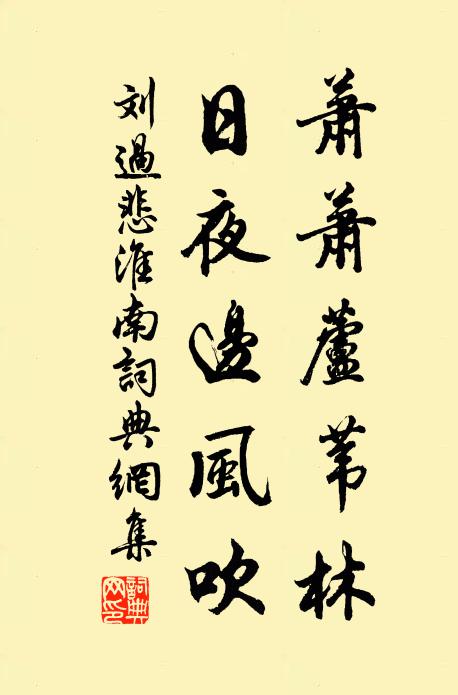 蕭蕭蘆苇林
日夜邊風吹
刘過悲淮南詞典網集
詞典網印